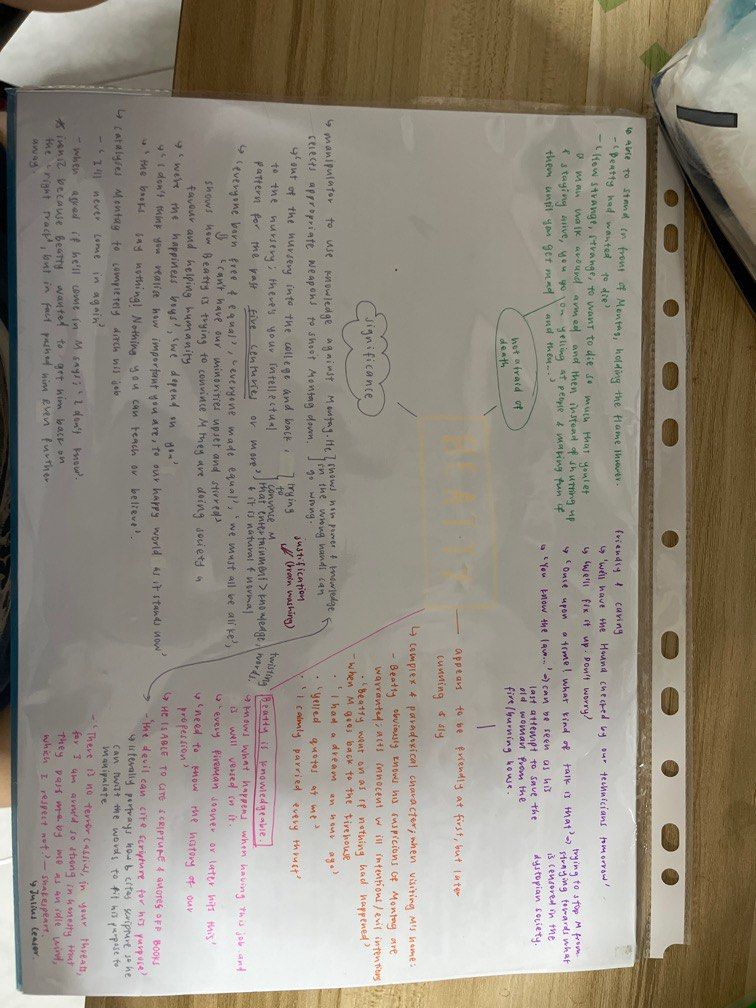 BEATTY
not afraid of
death
↳ able to stand in front of Montag, holding the flame thrower.
- 'Beatty had wanted to die'
- 'How strange, strange, to want to die so much that you let
a man walk around armed and then instead of shutting up
& staying alive, you go on yelling at people & making fun of
them until you get mad, and then...'
friendly & caring
↳ 'We'll have the Hound checked by our technicians tomorrow'
↳ 'We'll fix it up. Don't worry'
↳ 'Once upon a time! What kind of talk is that?' → trying to stop M from
straying towards what
is censored in the
dystopian society.
↳ 'You know the law...' → can be seen as his
last attempt to save the
old woman from the
fire/burning house.
appears to be friendly at first, but later
cunning & sly
↳ complex & paradoxical character, when visiting M's home:
- Beatty obviously knows his suspicions of Montag are
warranted, acts innocent w ill intentions/evil intentions
- 'Beatty went on as if nothing had happened'
- when M goes back to the firehouse
• 'I had a dream an hour ago'
• 'yelled quotes at me'
• 'I calmly parried every thrust'
twisting
words.
Beatty is knowledgeable
↳ knows what happens when having this job and
is well versed in it.
↳ 'every fireman, sooner or later hits this'
↳ 'need to know the history of our
profession'
↳ HE IS ABLE TO CITE SCRIPTURE & QUOTES OFF BOOKS
- 'the devil can cite scripture for his purpose'
↳ literally portrays how B cites scripture so he
can twist the words to fit his purpose to
manipulate
- 'There is no terror, Cassius, in your threats,
for I am armed so strong in honesty that
they pass me by me as an idle wind,
which I respect not!' - Shakespeare
↳ Julius Ceasar.
significance
↳ manipulator to use knowledge against Montag. He
selects appropriate weapons to shoot Montag down
shows how power & knowledge
in the wrong hands can
go wrong.
↳ 'out of the nursery into the college and back
to the nursery; there's your intellectual
pattern for the past five centuries or more'
trying
to
convince M
that entertainment > knowledge
& it is natural & normal
justification
(brain washing)
↳ 'everyone born free & equal', 'everyone made equal', 'we must all be alike',
'cant have our minorities upset and stirred'
shows how Beatty is trying to convince M they are doing society a
favour and helping humanity
↳ 'we're the happiness boys', 'we depend on you'
↳ 'I don't think you realise how important you are, to our happy world as it stands now'
↳ 'the books say nothing! Nothing you can teach or believe'.
↳ catalyses Montag to completely ditch his job
- 'I'll never come in again'
- when asked if he'll come in M says: 'I don't know'.
* ironic because Beatty wanted to get him back on
the 'right track', but in fact pushed him even further
away.